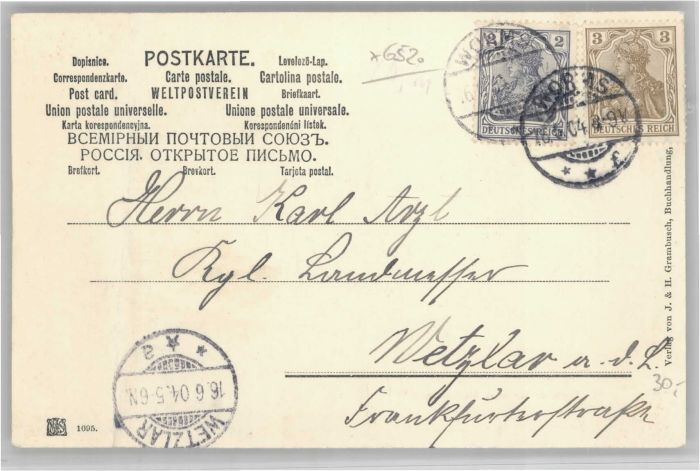 POSTKARTE.
Dopisnice. Levelező-Lap.
Correspondenzkarte. Carte postale. Cartolina postale.
Post card. WELTPOSTVEREIN Briefkaart.
Union postale universelle. Unione postale universale.
Karta korespondencyjna. Korespondenční lístek.
ВСЕМІРНЫЙ ПОЧТОВЫЙ СОЮЗЪ.
РОССІЯ. ОТКРЫТОЕ ПИСЬМО.
Brefkort. Brevkort. Tarjeta postal.
6520
2
DEUTSCHES REICH
3
DEUTSCHES REICH
WORMS
WORMS
Herrn Karl Arzt
Kgl. Landmesser
Wetzlar a. d. L.
Frankfurterstraße
30.-
Verlag von J. & H. Grambusch, Buchhandlung,
WETZLAR
16.6.04.5-6N.
a
1095.